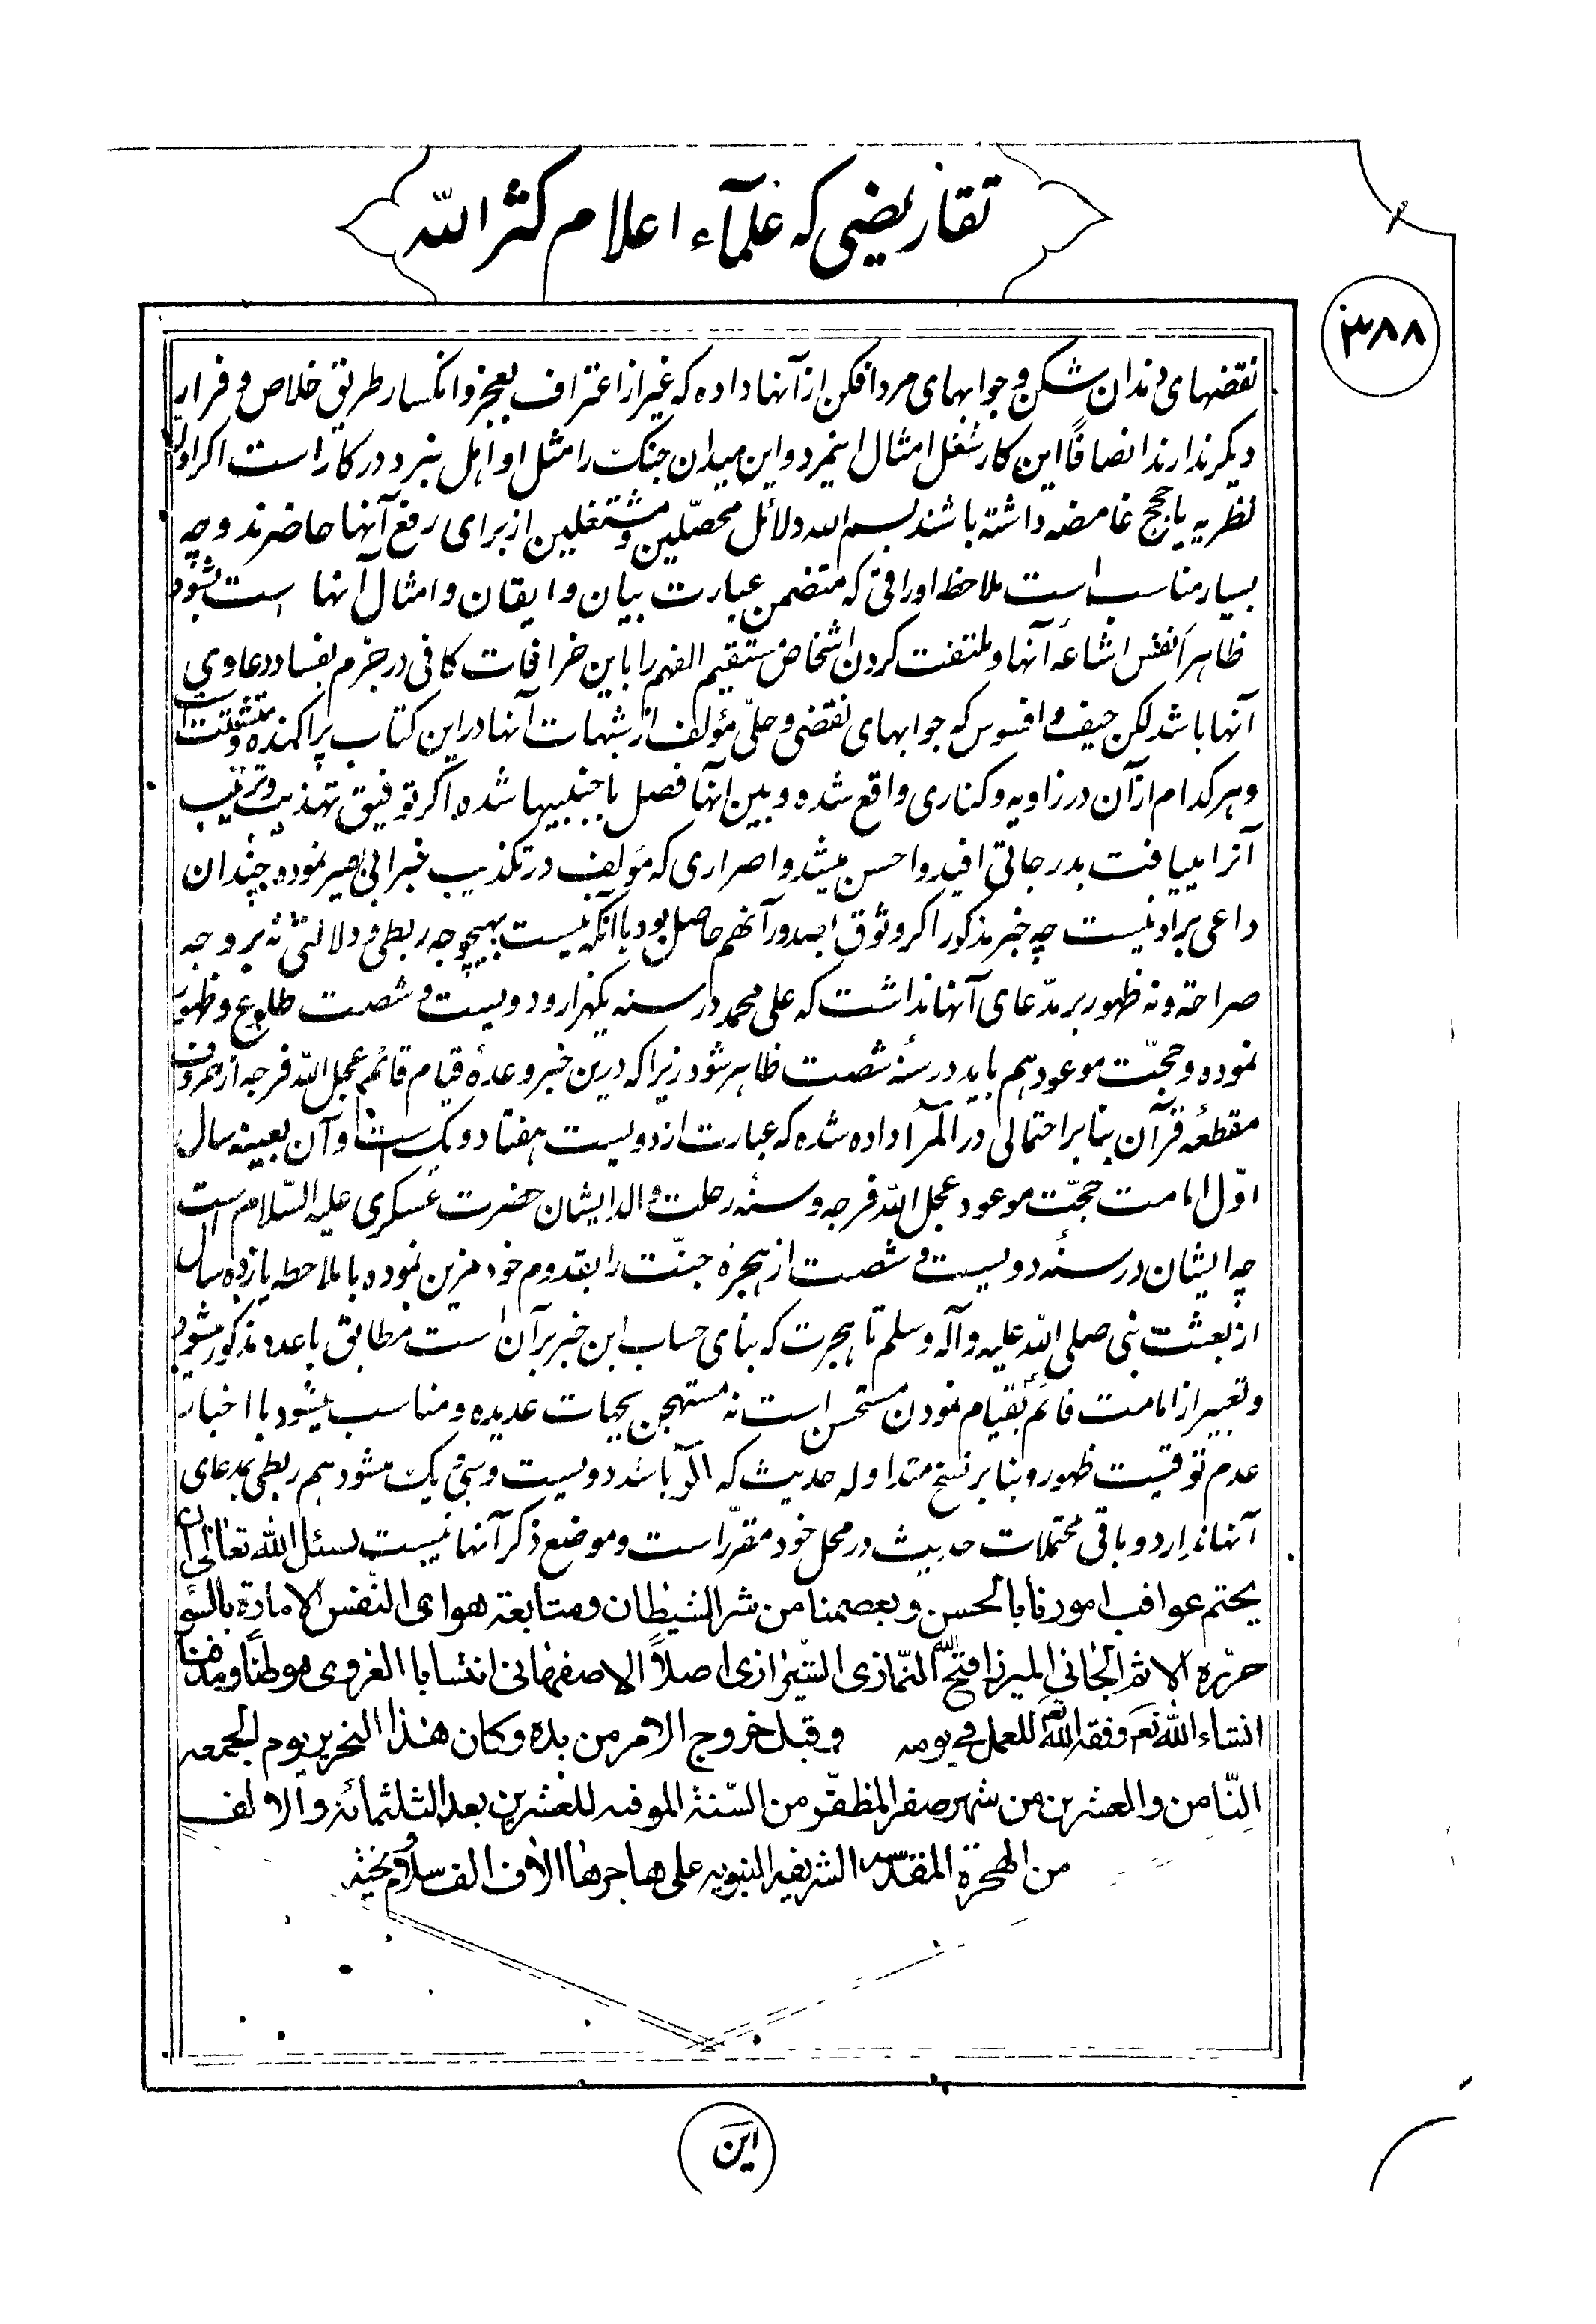 تقاریضی که علمآء اعلام کثر الله
۳۸۸
نقضهای دندان شکن و جوابهای مرد افکن از آنها داده که غیر از اعتراف بعجز و انکسار طریق خلاص و فرار
دیکر ندارند انصافًا این کار شغل امثال اینمرد و این میدان جنک را مثل او اهل نبرد در کار است اکر ادلّه
نظریه یا حجج غامضه داشته باشند بسم الله دلائل محصّلین و مشتغلین از برای رفع آنها حاضرند و چه
بسیار مناسب است ملاحظ اوراقی که متضمن عبارت بیان و ایقان و امثال آنها است بشود
ظاهرًا نفس اشاعه آنها و ملتفت کردن اشخاص مستقیم الفهم را باین خرافات کافی در جزم بفساد دعاوی
آنها باشد لکن حیف و افسوس که جوابهای نقضی و حلّی مؤلف از شبهات آنها در این کتاب پراکنده و متشتت است
و هر کدام از آن در زاویه و کناری واقع شده و بین آنها فصل باجنبیها شده اکر توفیق تهذیب و ترتیب
آنرا مییافت بدرجاتی افید و احسن میشد و اصراری که مؤلف در تکذیب خبر ابی بصیر نموده چندان
داعی براد نیست چه خبر مذکور اکر وثوق بصدور آنهم حاصل بود با آنکه نیست بهیچوجه ربطی و دلالتی نه بر وجه
صراحة و نه ظهور بر مدّعای آنها نداشت که علی محمد در سنه یکهزار و دویست و شصت طلوع و ظهور
نموده و حجّت موعود هم باید در سنهٔ شصت ظاهر شود زیرا که درین خبر وعدهٔ قیام قائم عجل الله فرجه از حروف
مقطعهٔ قرآن بنا بر احتمالی در المر داده شده که عبارت از دویست هفتاد و یک است و آن بعینه سال
اوّل امامت حجّت موعود عجل الله فرجه و سنهٔ رحلت والد ایشان حضرت عسکری علیه السّلام است
چه ایشان در سنهٔ دویست و شصت از هجرة جنّت را بقدوم خود مزین نموده با ملاحظه یازده سال
از بعثت نبی صلی الله علیه و آله و سلم تا هجرت که بنای حساب این خبر بر آن است مطابق با عدد مذکور میشود
و تعبیر از امامت قائم بقیام نمودن مستحسن است نه مستهجن بجهات عدیده و مناسب میشود با اخبار
عدم توقیت ظهور و بنا بر نسخ متداوله حدیث که الر باشد دویست و سی و یک میشود هم ربطی بمدعای
آنها ندارد و باقی محتملات حدیث در محل خود مقرّر است و موضع ذکر آنها نیست نسئل الله تعالی ان
یختم عواقب امورنا بالحسن و یعصمنا من شر الشیطان و متابعة هوای النّفس الامارة بالسّوء
حرّره الاثم الجانی المیرزا فتح الله النّمازی الشّیرازی اصلًا الاصفهانی انتسابا الغروی موطنًا و مدفنا
انشاء الله تعَ وفقه اللهُ للعمل فی یومه و قبل خروج الامر من یده و کان هذا التحریر یوم الجمعه
الثّامن و العشرین من شهر صفر المظفّر من السّنة الموفیه للعشرین بعد الثلثمائة و الالف
من الهجرة المقدّسه الشریفه النبویه علی هاجرها الاف الف سلام و تحیّة
این